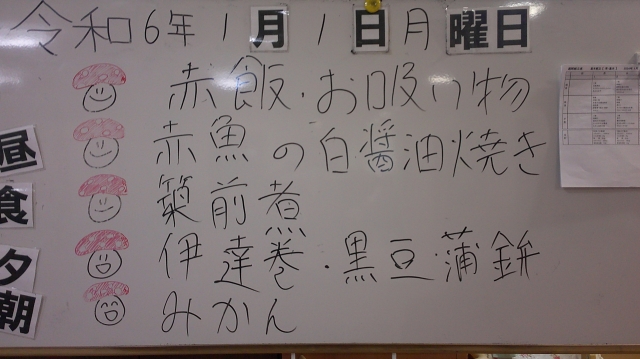 令和6年1月1日月曜日
赤飯・お吸り物
赤魚の白醤油焼き
筑前煮
伊達巻・黒豆・蒲鉾
みかん
昼
食
夕
朝